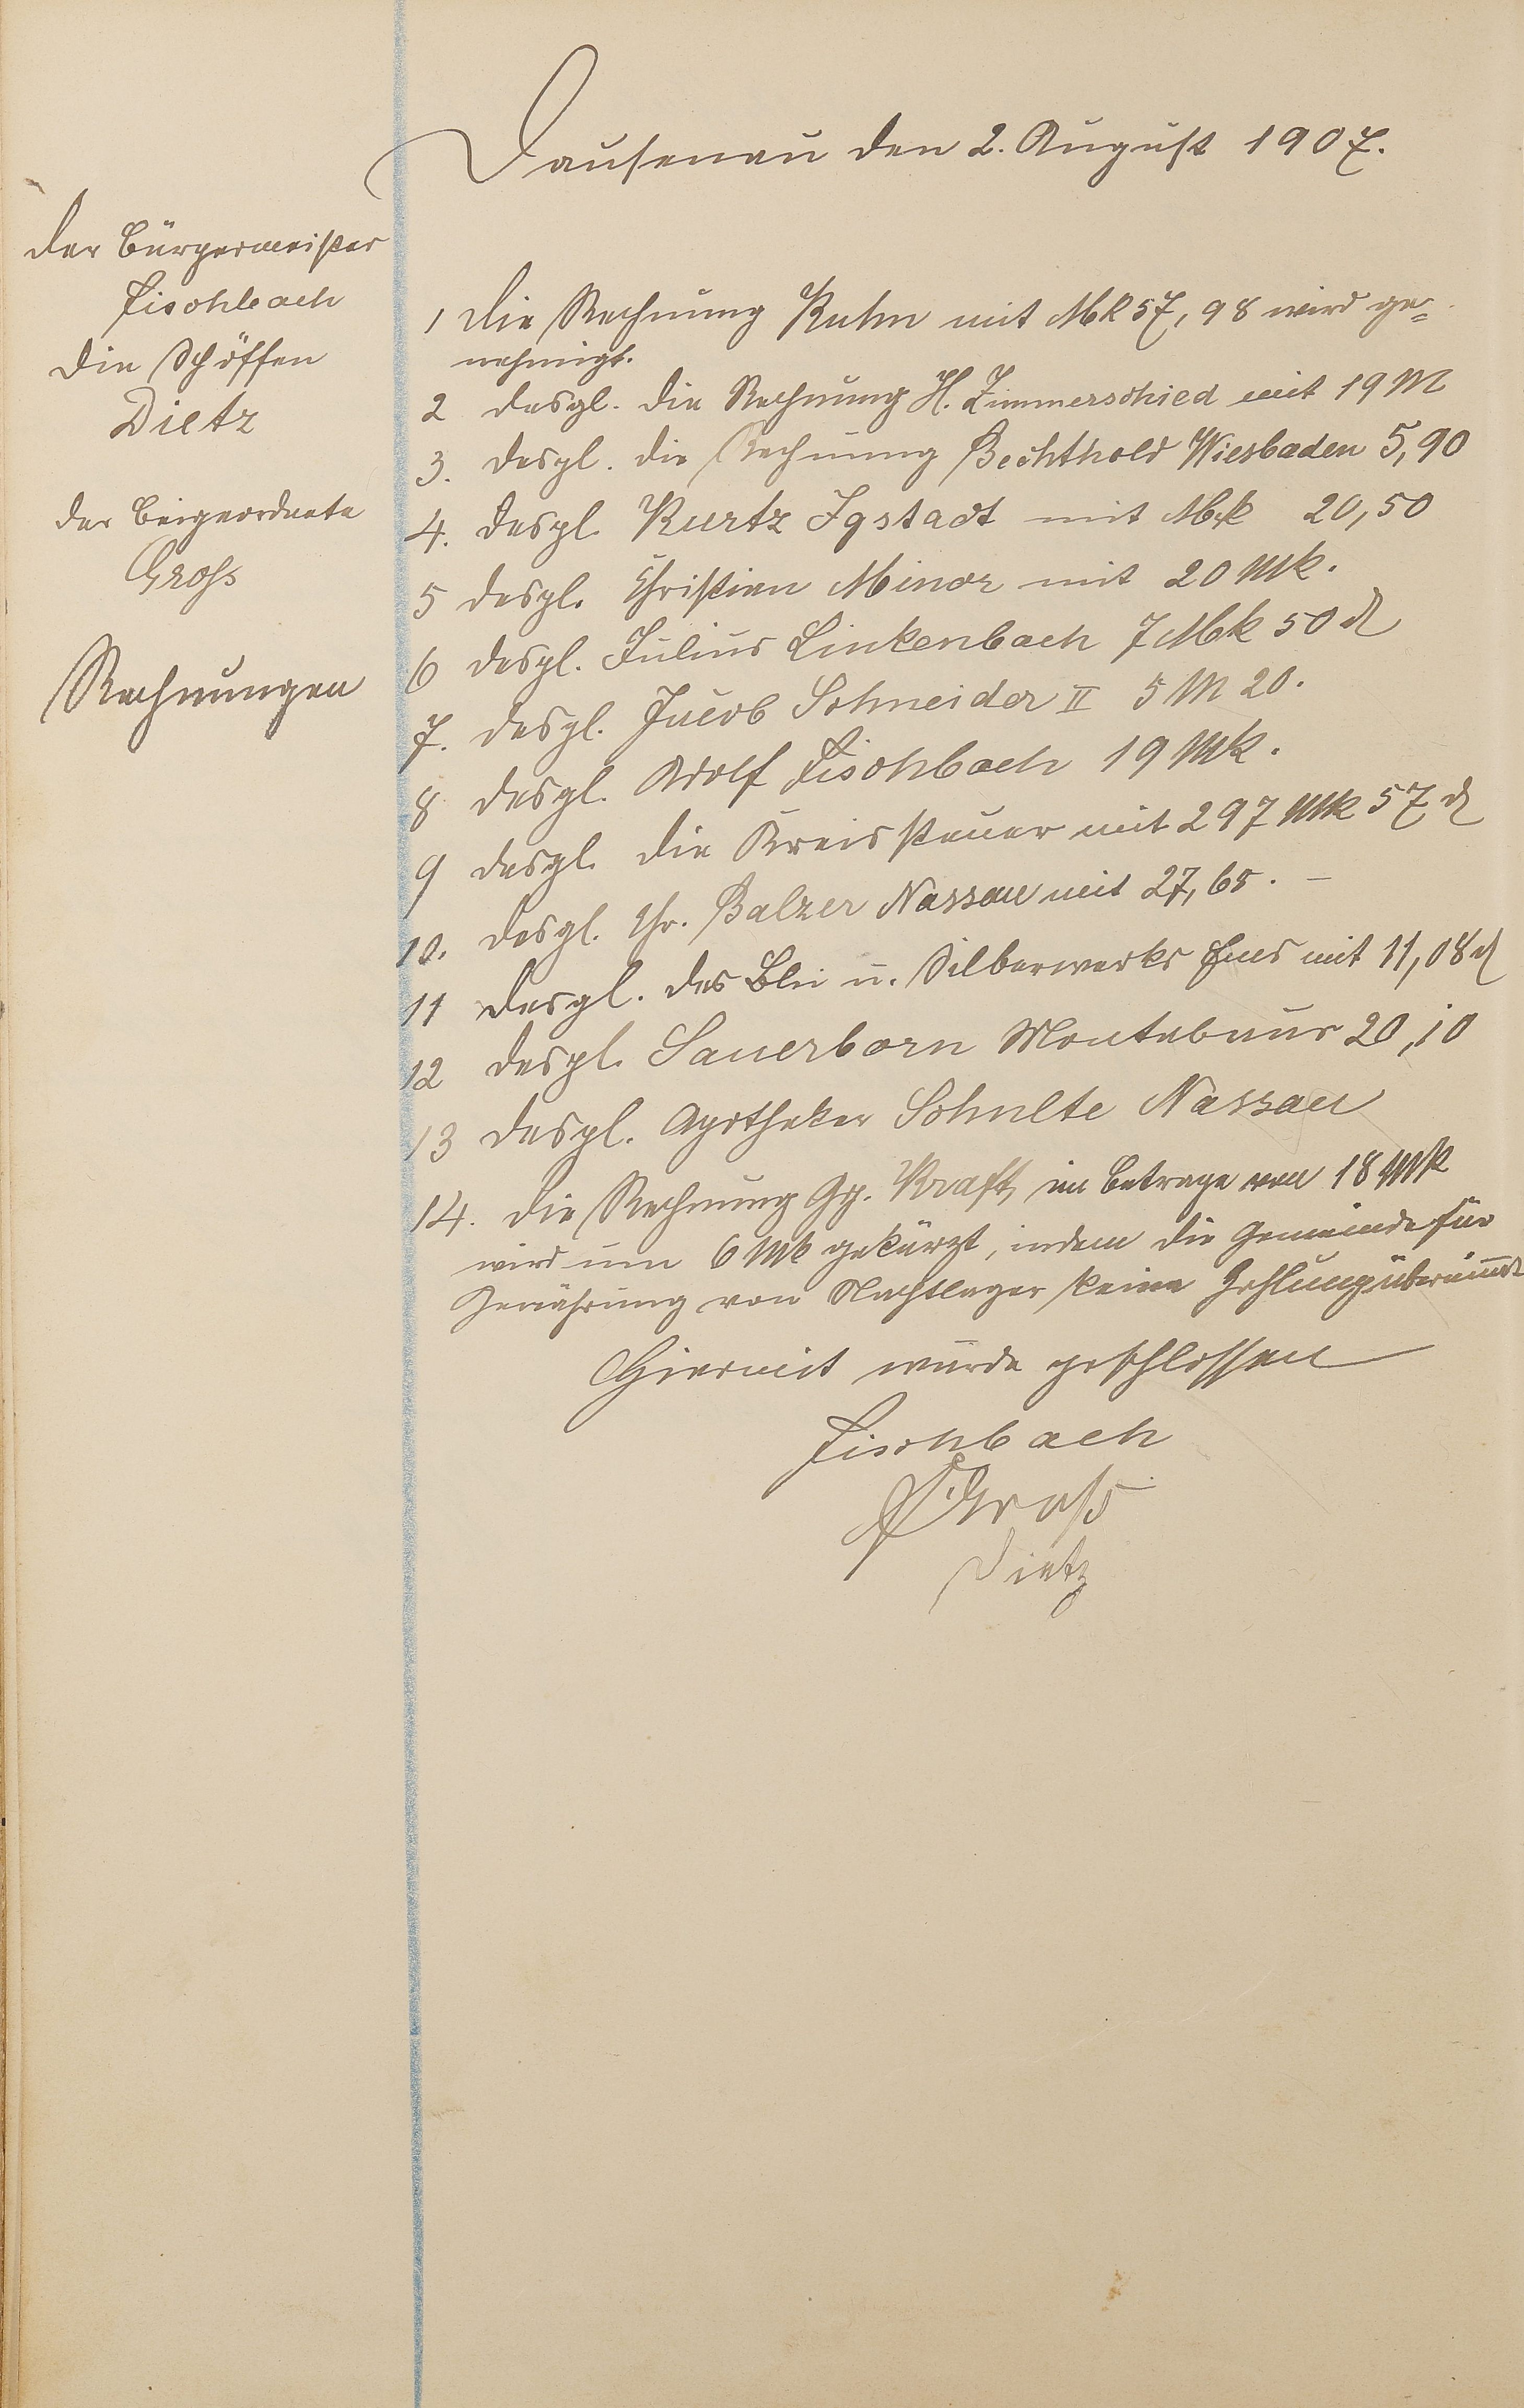 Dausenau den 2. August 1907.
Der Bürgermeister
Fischbach
Die Schöffen
Dietz
Der Beigeordnete
Groß
Rechnungen
1 Die Rechnung Kuhn mit Mk 57,98 wird ge=
nehmigt.
2 desgl. die Rechnung H. Zimmerschied mit 19 M
3. desgl. die Rechnung Bechthold Wiesbaden 5,90
4. desgl. Kurtz Igstadt mit Mk 20,50
5 desgl. Christian Minor mit 20 Mk.
6 desgl. Julius Linkenbach 7 Mk 50 ₰
7. desgl. Jacob Schneider II 5 M 20.
8 desgl. Adolf Fischbach 19 Mk.
9 desgl. die Kreissteuer mit 297 Mk 57 ₰
10. desgl. Chr. Balzer Nassau mit 27,65. –
11 desgl. des Blei u. Silberwerks Ems mit 11,08 ₰
12 desgl. Sauerborn Montabaur 20,10
13 desgl. Apotheker Schulte Nassau
14. Die Rechnung Gg. Kraft, im Betrage von 18 Mk
wird um 6 Mk gekürzt, indem die Gemeinde für
Gewährung von Nachtlager keine Zahlung übernimmt
Hiermit wurde geschlossen
Fischbach
Groß
Dietz